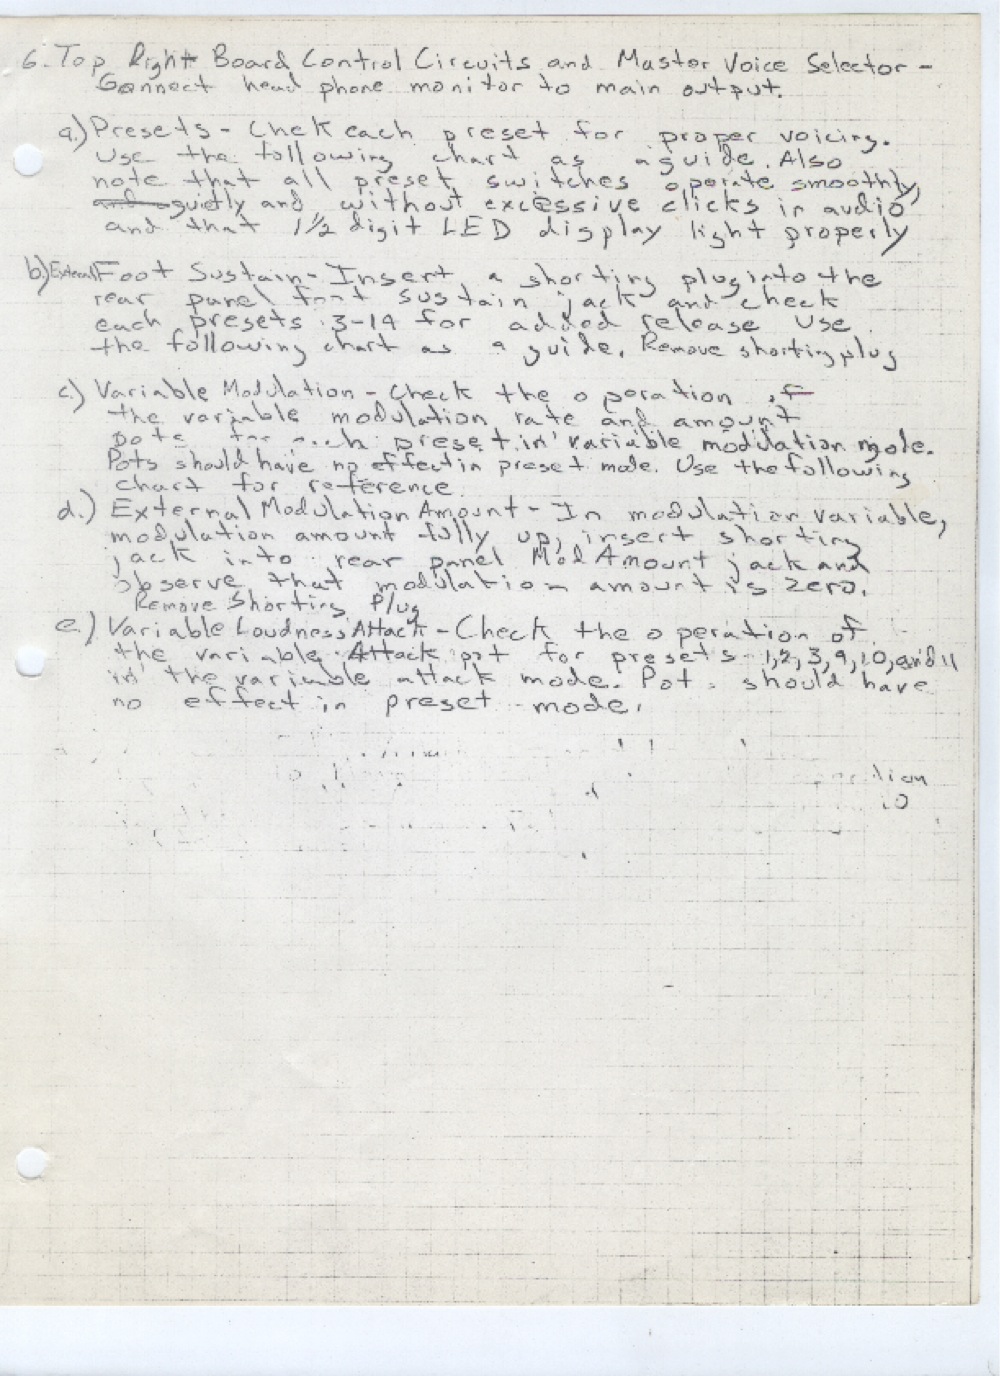 6. Top Right Board Control Circuits and Master Voice Selector -
Connect head phone monitor to main output.
a.) Presets - Chck each preset for proper voicing.
Use the following chart as a guide. Also
note that all preset switches operate smoothly,
quetly and without excessive clicks in audio
and that 1 1/2 digit LED display light properly
b.) External Foot Sustain - Insert a shorting plug into the
rear panel foot sustain jack and check
each presets 3-14 for added release Use
the following chart as a guide. Remove shorting plug
c.) Variable Modulation - Check the operation of
the variable modulation rate and amount
pots for each preset in variable modulation mode.
Pots should have no effect in preset mode. Use the following
chart for reference.
d.) External Modulation Amount - In modulation variable,
modulation amount fully up, insert shorting
jack into rear panel Mod Amount jack and
observe that modulation amount is zero.
Remove Shorting Plug
e.) Variable Loudness Attack - Check the operation of
the variable Attack pot for presets 1,2,3,9,10, and 11
in the variable attack mode. Pot should have
no effect in preset mode.